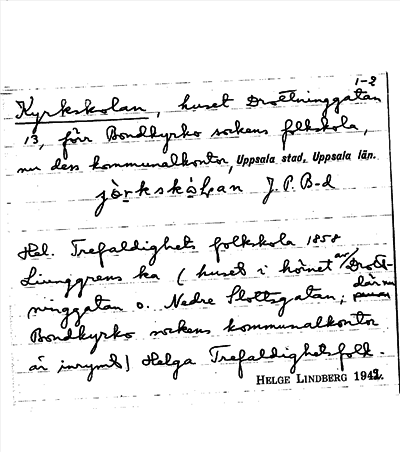 1-2
Kyrkskolan, huset Drottninggatan
13, förr Bondkyrko sockens folkskola,
nu dess kommunalkontor, Uppsala stad, Uppsala län.
J. P. B-d
Hel. Trefaldighets folkskola 1858
Ljunggrens ka (huset i hörnet av Drott-
ninggatan o. Nedre Slottsgatan, där nu
Bondkyrko sockens kommunalkontor
är inrymt) Helga Trefaldighets folk.
HELGE LINDBERG 1942.